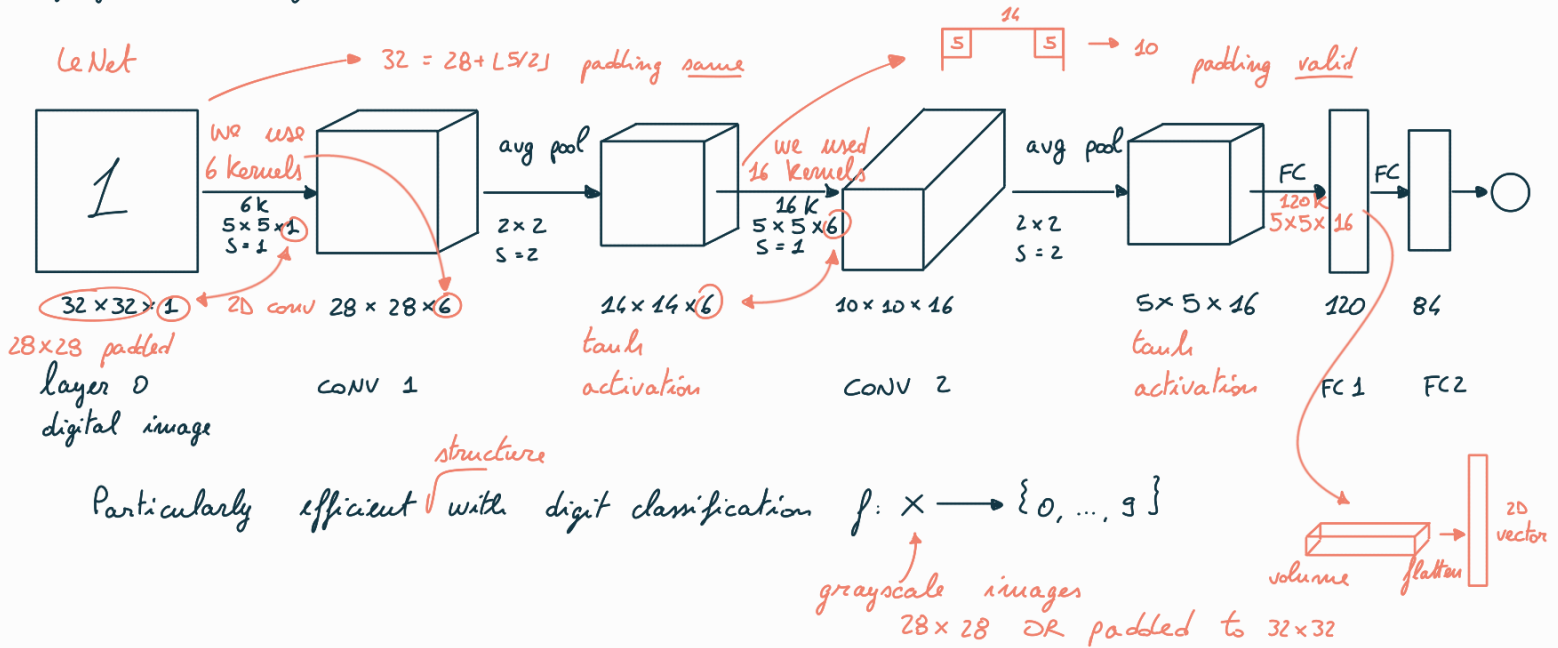 14
LeNet
32 = 28 + ⌊5/2⌋ padding same
5 5 → 10
padding valid
1
we use
6 kernels
6K
5×5×1
S=1
avg pool
2×2
S=2
we used
16 kernels
16K
5×5×6
S=1
avg pool
2×2
S=2
FC
120K
5×5×16
FC
32×32×1
2D conv
28×28×6
14×14×6
10×10×16
5×5×16
120
84
28×28 padded
tanh
activation
tanh
activation
layer 0
digital image
CONV 1
CONV 2
FC1
FC2
structure
Particularly efficient √ with digit classification f: X → {0, ..., 9}
grayscale images
28×28 OR padded to 32×32
volume
flatten
2D
vector